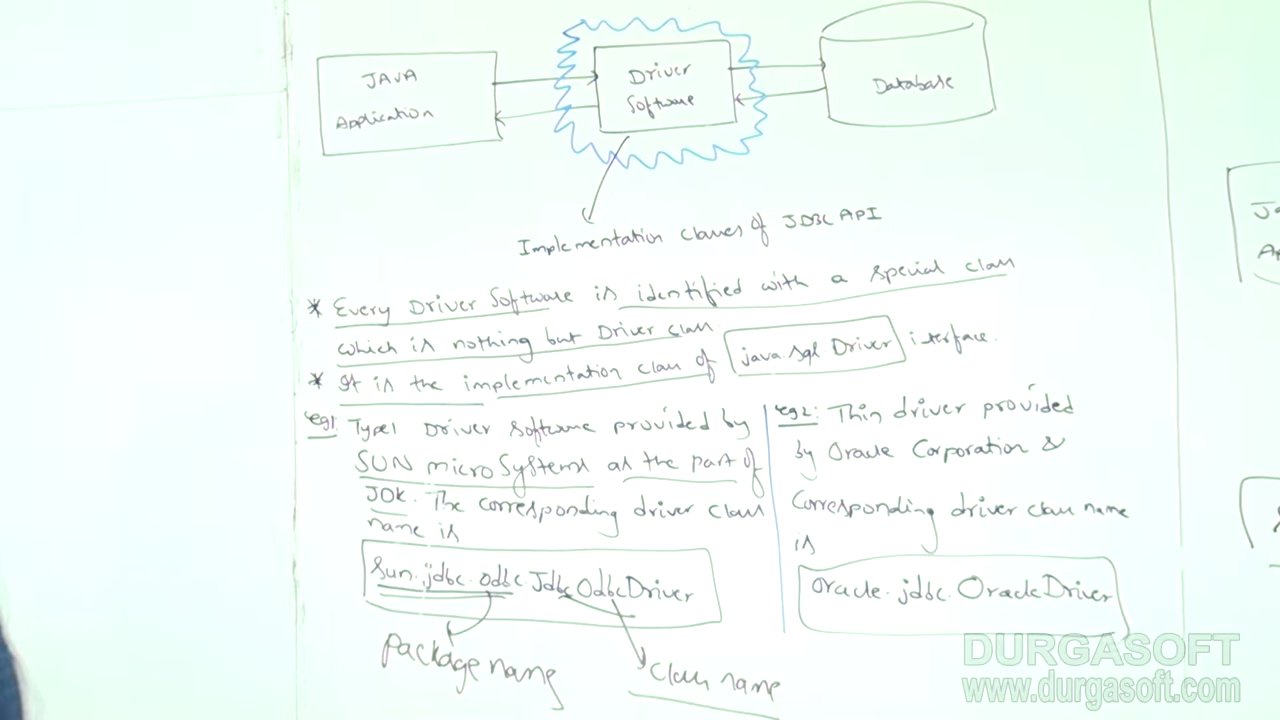 JAVA
Application
Driver
Software
Database
Implementation classes of JDBC API
* Every Driver Software is identified with a special class
which is nothing but Driver class
* It is the implementation class of java.sql Driver interface.
eg1: Type1 Driver Software provided by
SUN micro Systems as the part of
JDK. The corresponding driver class
name is
sun.jdbc.odbc.JdbcOdbcDriver
package name
class name
eg2: Thin driver provided
by Oracle Corporation &
Corresponding driver class name
is
oracle.jdbc.OracleDriver
DURGASOFT
www.durgasoft.com